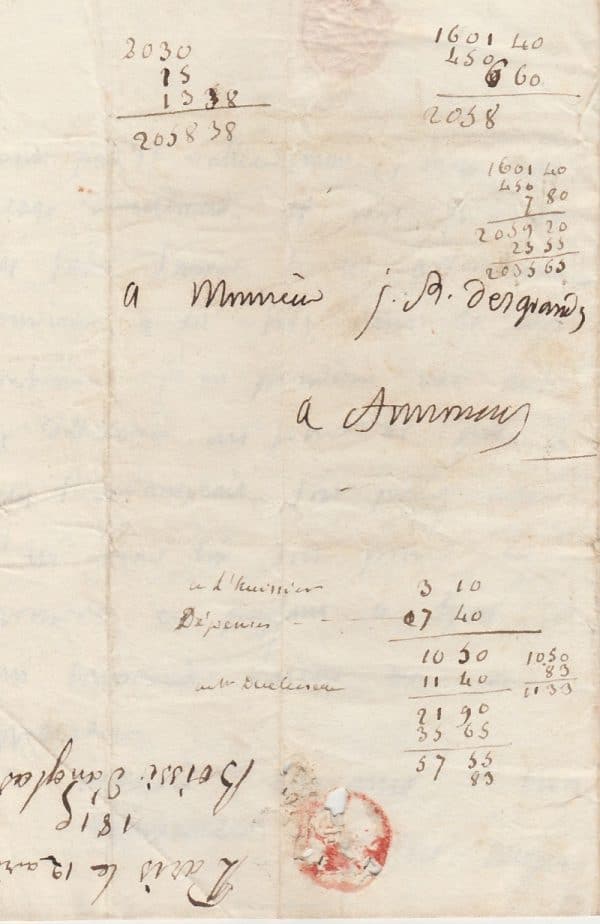 2030
15
13 38
2058 38
1601 40
450
6 60
2058
1601 40
450
7 80
2059 20
23 55
2035 65
a Monsieur j. B. desgrands
a Annonay
a L'huissier 3 10
Dépenses 07 40
10 50
11 40
21 90
35 65
57 55
83
1050
83
1133
Boissi d'anglas
1815
Paris le 12